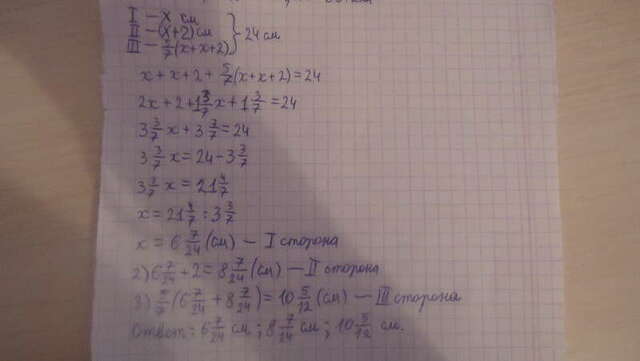 I – x см
II – (x+2) см
III – 5/7 (x+x+2) } 24 см
x + x + 2 + 5/7 (x+x+2) = 24
2x + 2 + 1 3/7 x + 1 3/7 = 24
3 3/7 x + 3 3/7 = 24
3 3/7 x = 24 - 3 3/7
3 3/7 x = 21 4/7
x = 21 4/7 : 3 3/7
x = 6 7/24 (см) – I сторона
2) 6 7/24 + 2 = 8 7/24 (см) – II сторона
3) 5/7 (6 7/24 + 8 7/24) = 10 5/12 (см) – III сторона
Ответ: 6 7/24 см; 8 7/24 см; 10 5/12 см.